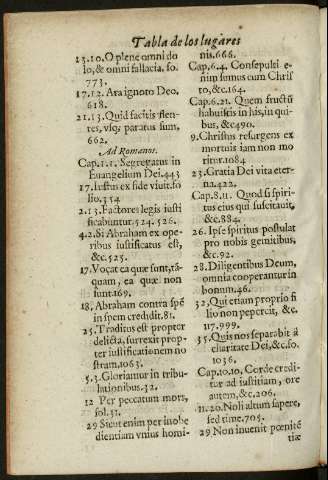 Tabla de los lugares
13.10. O plene omni do
lo, & omni fallacia. fo.
773.
17.12. Ara ignoto Deo.
618.
21.13. Quid facitis flen-
tes, vsq; paratus sum,
662.
Ad Romanos.
Cap.1.1. Segregatus in
Euangelium Dei.443
17. Iustus ex fide viuit.fo
lio, 354
2.13. Factores legis iusti
ficabuntur. 524. 526.
4.2. Si Abraham ex ope-
ribus iustificatus est,
&c. 525.
17. Voçat ea quæ sunt, tã-
quam, ea quæ non
sunt 169.
18. Abraham contra spẽ
in spem credidit. 81.
25. Traditus est propter
delicta, surrexit prop-
ter iustificationem no
stram. 1063.
5.3. Gloriantur in tribu-
lationibus. 52.
12 Per peccatum mors,
fol. 31.
29 Sicut enim per inobe
dientiam vnius homi-
nis. 666.
Cap. 6.4. Consepulti e-
nim sumus cum Chris
to, &c. 164.
Cap. 6.21. Quem fructũ
habuistis in his, in qui-
bus, &c 490.
9. Christus resurgens ex
mortuis iam non mo
ritur. 1084
23. Gratia Dei vita eter-
na. 422.
Cap. 8.11. Quod si spiri-
tus eius qui suscitauit,
&c. 884.
26. Ipse spiritus postulat
pro nobis gemitibus,
&c. 92.
28. Diligentibus Deum,
omnia cooperantur in
bonum. 46.
32. Qui etiam proprio fi
lio non pepercit, &c.
117.999.
35. Quis nos separabit à
charitate Dei, &c. fo.
1036.
Cap. 10.10. Corde credi
tur ad iustitiam, ore
autem, &c. 206.
11.20. Noli altum sapere,
sed time. 705.
29 Non inuenit pœnitẽ
tiæ